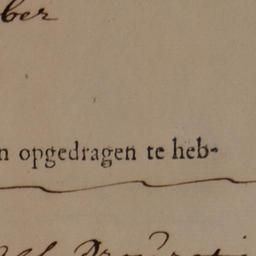 ber
n opgedragen te heb-